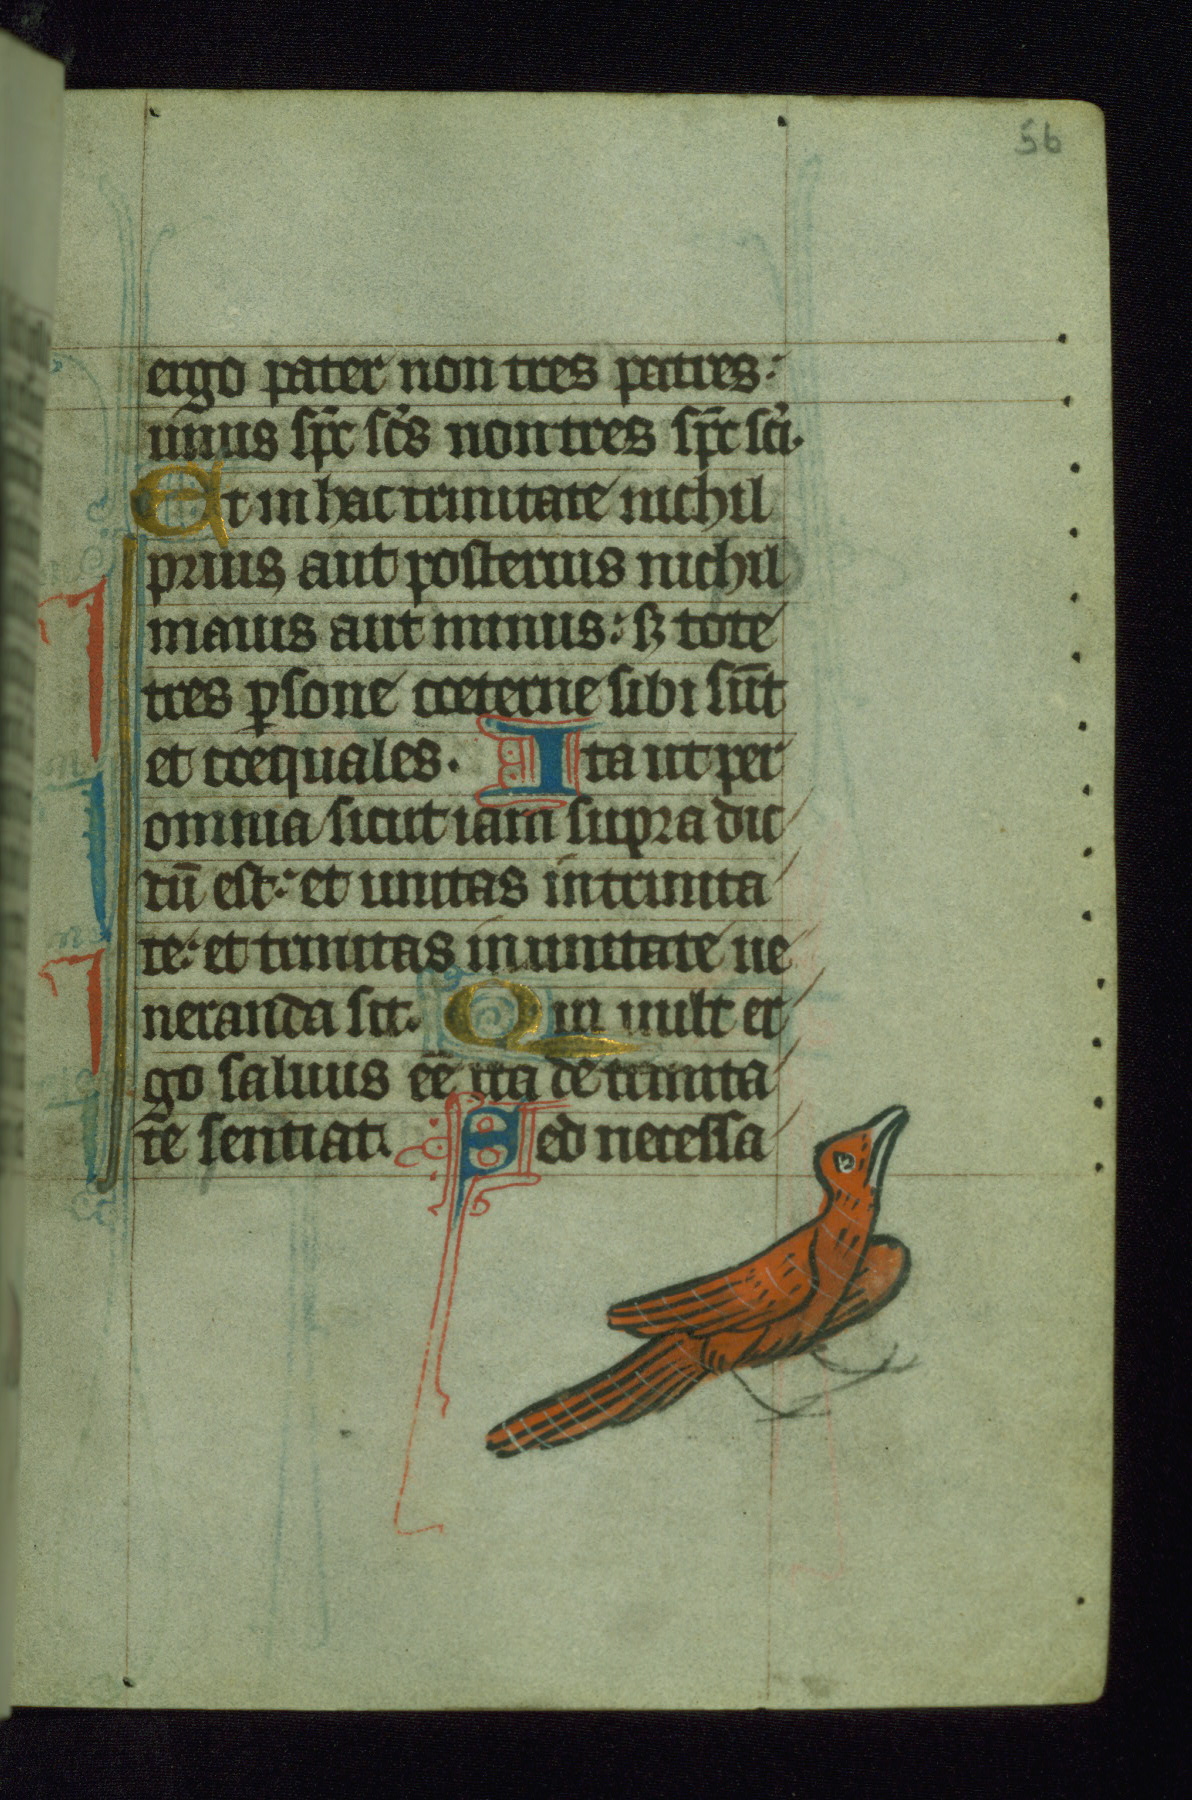 56
ergo pater non tres patres:
unus sp̄c sc̄s non tres sp̄c sc̄i.
Et in hac trinitate nichil
prius aut posterius nichil
maius aut minus: sꝫ tote
tres ꝑsone coeterne sibi sūt
et coequales. Ita ut per
omnia sicut iam supra dic
tū est: et unitas in trinita
te: et trinitas in unitate ue
neranda sit. Qui uult er
go saluus eē ita de trinita
te sentiat. Sed necessa